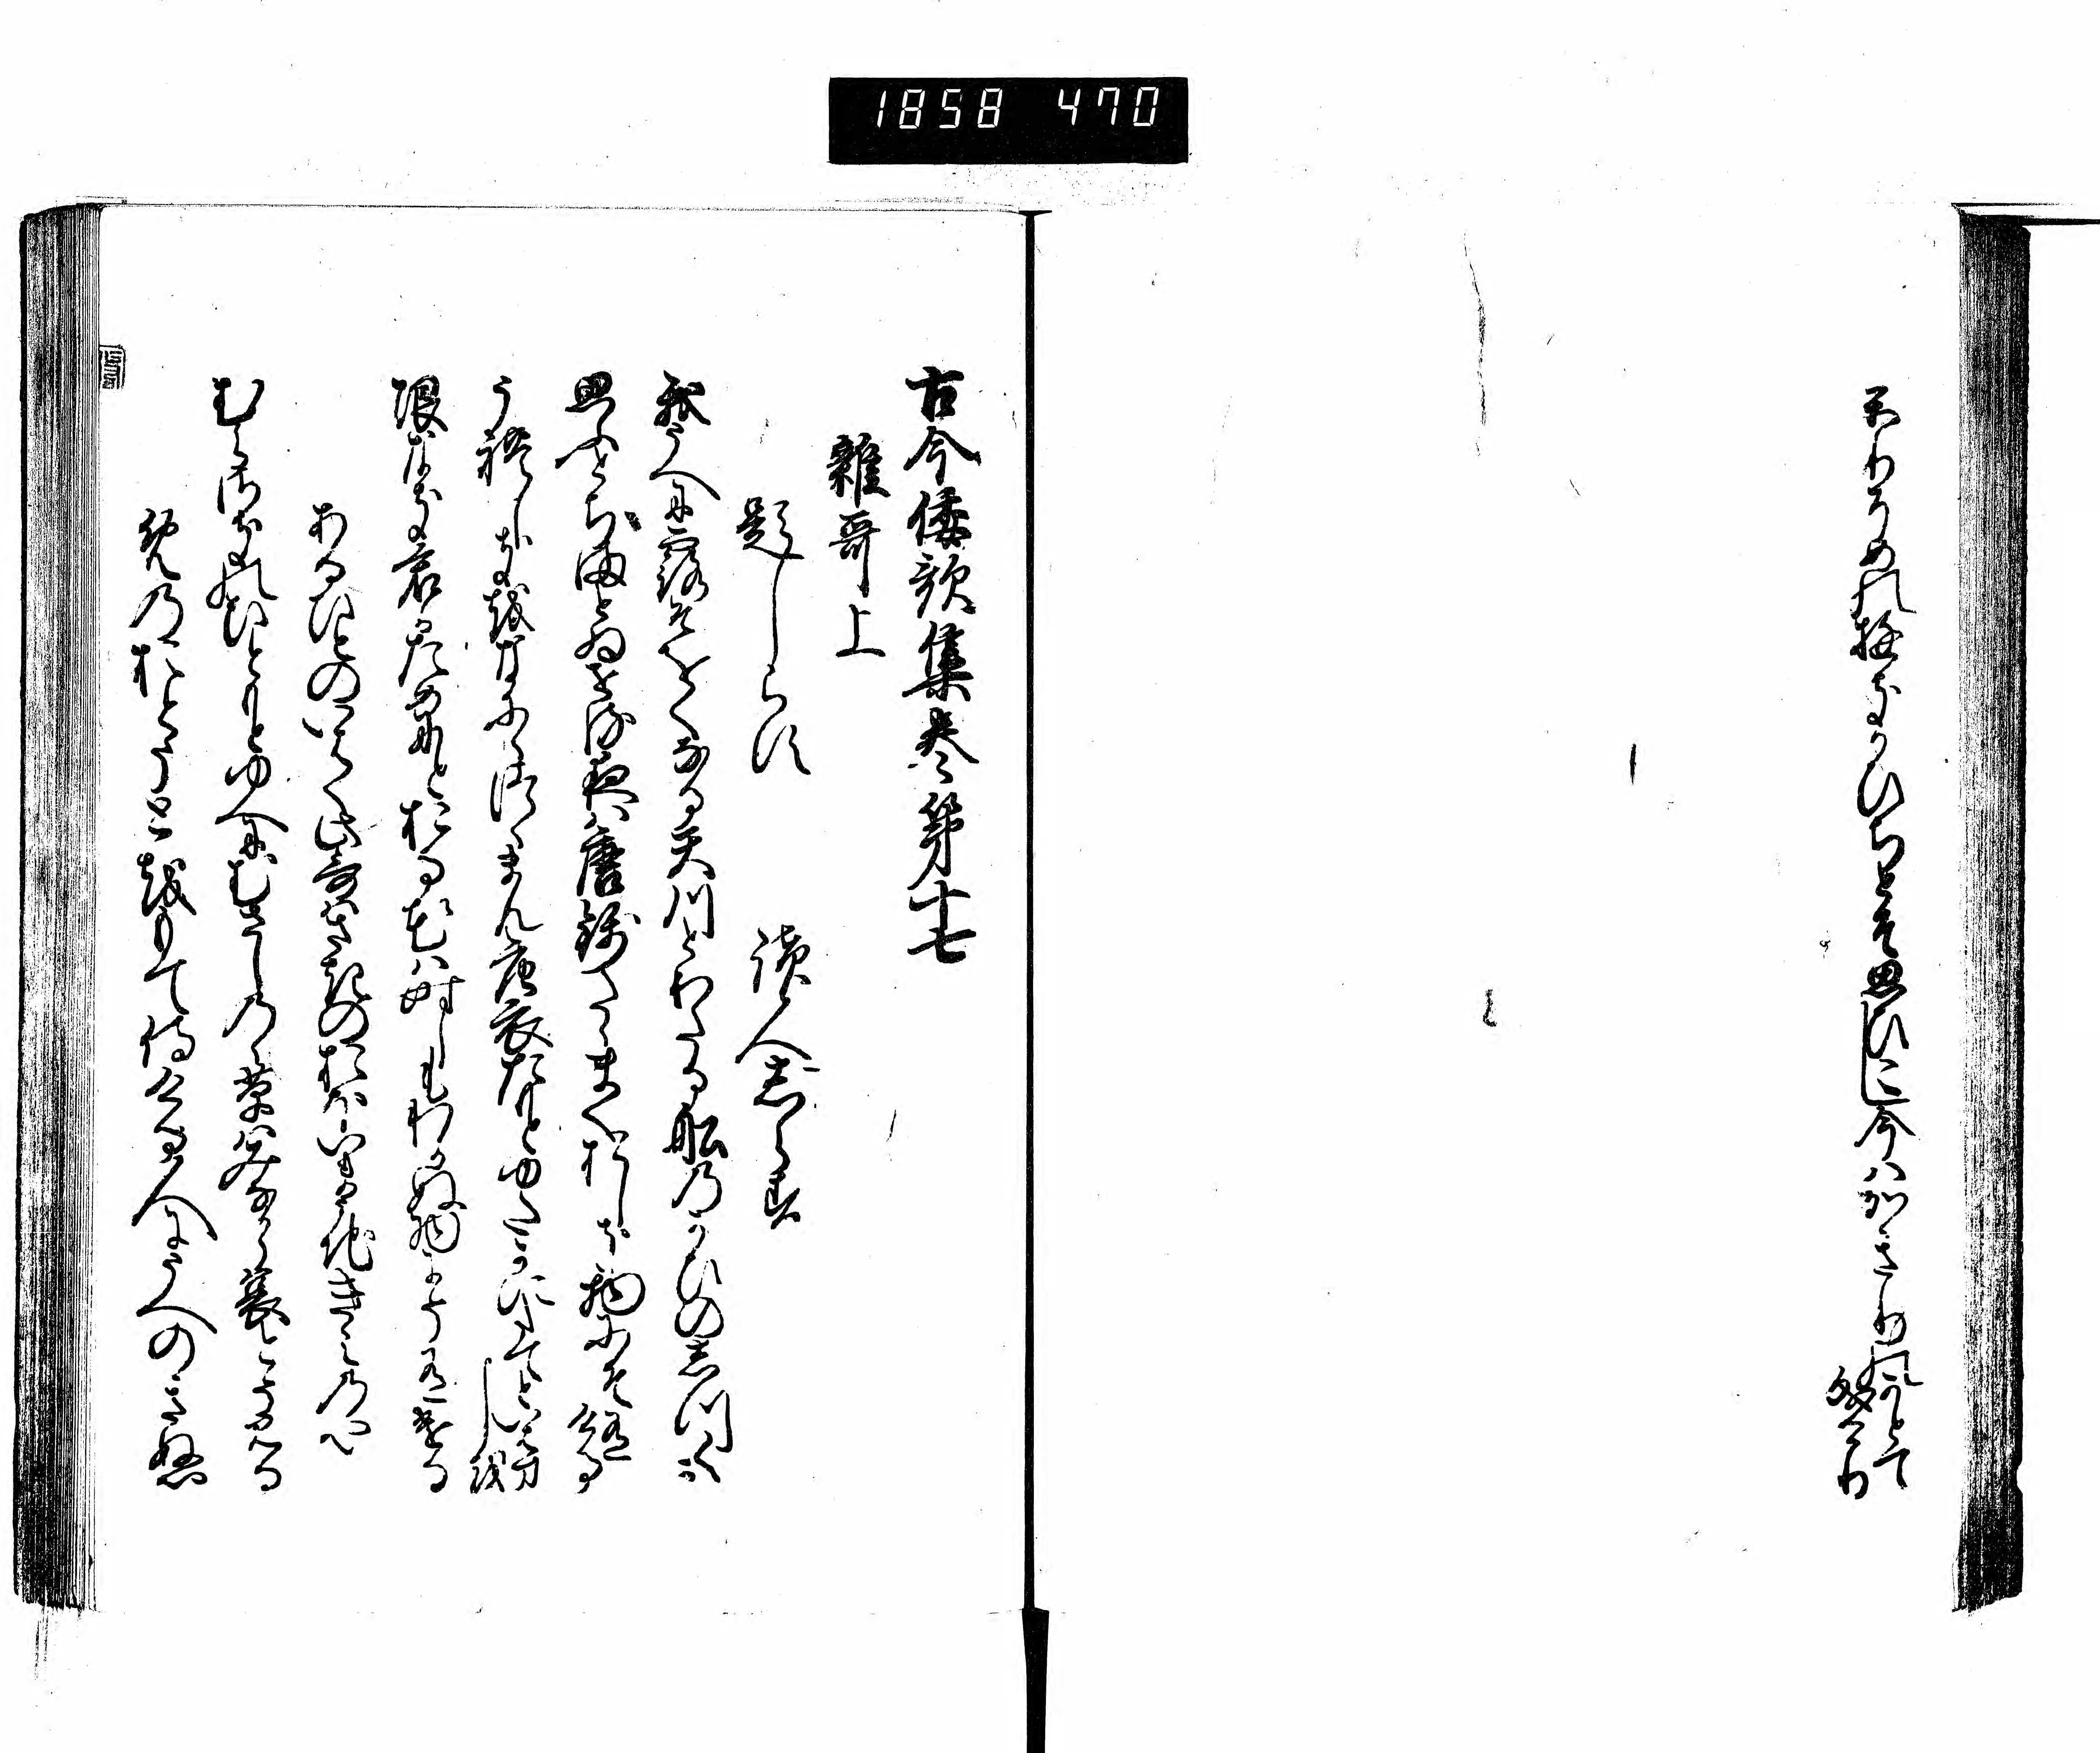 1858 470
かりそめのゆきかひちとそ思ひこし今はかきりのかとて
なりけり
古今倭歌集巻第十七
雑哥上
題しらす
読人志らす
我うへに露そをくなる天川とわたる船のかひのしつくか
思ふとちまとゐせる夜は唐錦たたまくおしき物にそ有ける
うれしきをなににつつまん唐衣たもとゆたかにたてといはましを
限なき君かためにとおる花は時しもわかぬ物にそ有ける
あるひとのいはく此哥はさきのおほいまうちきみの也
むらさきのひともとゆへにむさしのの草はみなからあはれとそみる
めのおとうとをもて侍ける人にうへのきぬ